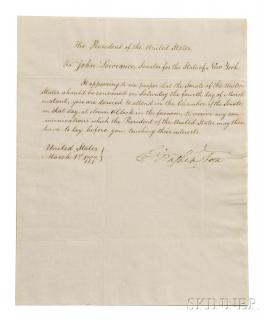 The President of the United States
To John Laurance, Senator for the State of New York.
It appearing to me proper that the Senate of the United
States should be convened on Saturday the fourth day of March
instant, you are desired to attend in the Chamber of the Senate
on that day, at eleven O'Clock in the forenoon, to receive any com-
munications which the President of the United States may then
have to lay before you touching their interests.
United States
March 1st 1797
G. Washington
SKINNER